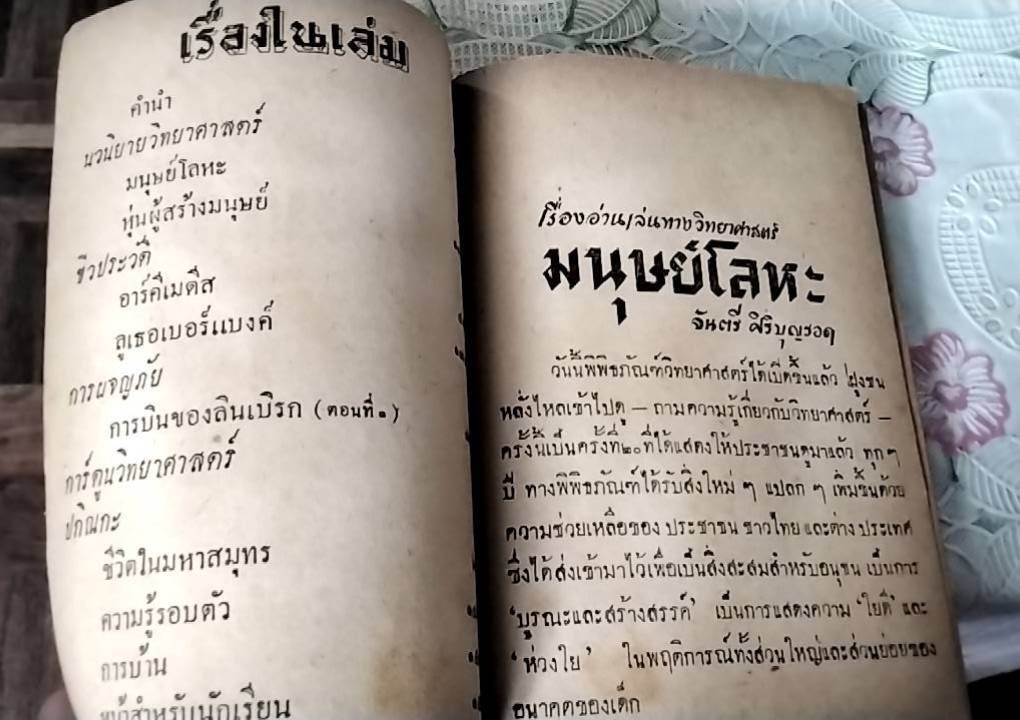 เรื่องในเล่ม
คำนำ
นวนิยายวิทยาศาสตร์
มนุษย์โลหะ
หุ่นผู้สร้างมนุษย์
ชีวประวัติ
อาร์คีเมดีส
ลูเธอเบอร์แบงค์
การผจญภัย
การบินของลินเบิรก (ตอนที่๑)
การ์ตูนวิทยาศาสตร์
ปกิณกะ
ชีวิตในมหาสมุทร
ความรู้รอบตัว
การบ้าน
สำหรับนักเรียน
เรื่องอ่านเล่นทางวิทยาศาสตร์
มนุษย์โลหะ
จันตรี ศิริบุญรอด
วันนี้พิพิธภัณฑ์วิทยาศาสตร์ได้เปิดขึ้นแล้ว ฝูงชน
หลั่งไหลเข้าไปดู – ถามความรู้เกี่ยวกับวิทยาศาสตร์ –
ครั้งนี้เป็นครั้งที่๒๐ที่ได้แสดงให้ประชาชนดูมาแล้ว ทุกๆ
ปี ทางพิพิธภัณฑ์ได้รับสิ่งใหม่ ๆ แปลก ๆ เพิ่มขึ้นด้วย
ความช่วยเหลือของ ประชาชน ชาวไทย และต่าง ประเทศ
ซึ่งได้ส่งเข้ามาไว้เพื่อเป็นสิ่งสะสมสำหรับอนุชน เป็นการ
'บูรณะและสร้างสรรค์' เป็นการแสดงความ 'ใยดี' และ
'ห่วงใย' ในพฤติการณ์ทั้งส่วนใหญ่และส่วนย่อยของ
อนาคตของเด็ก